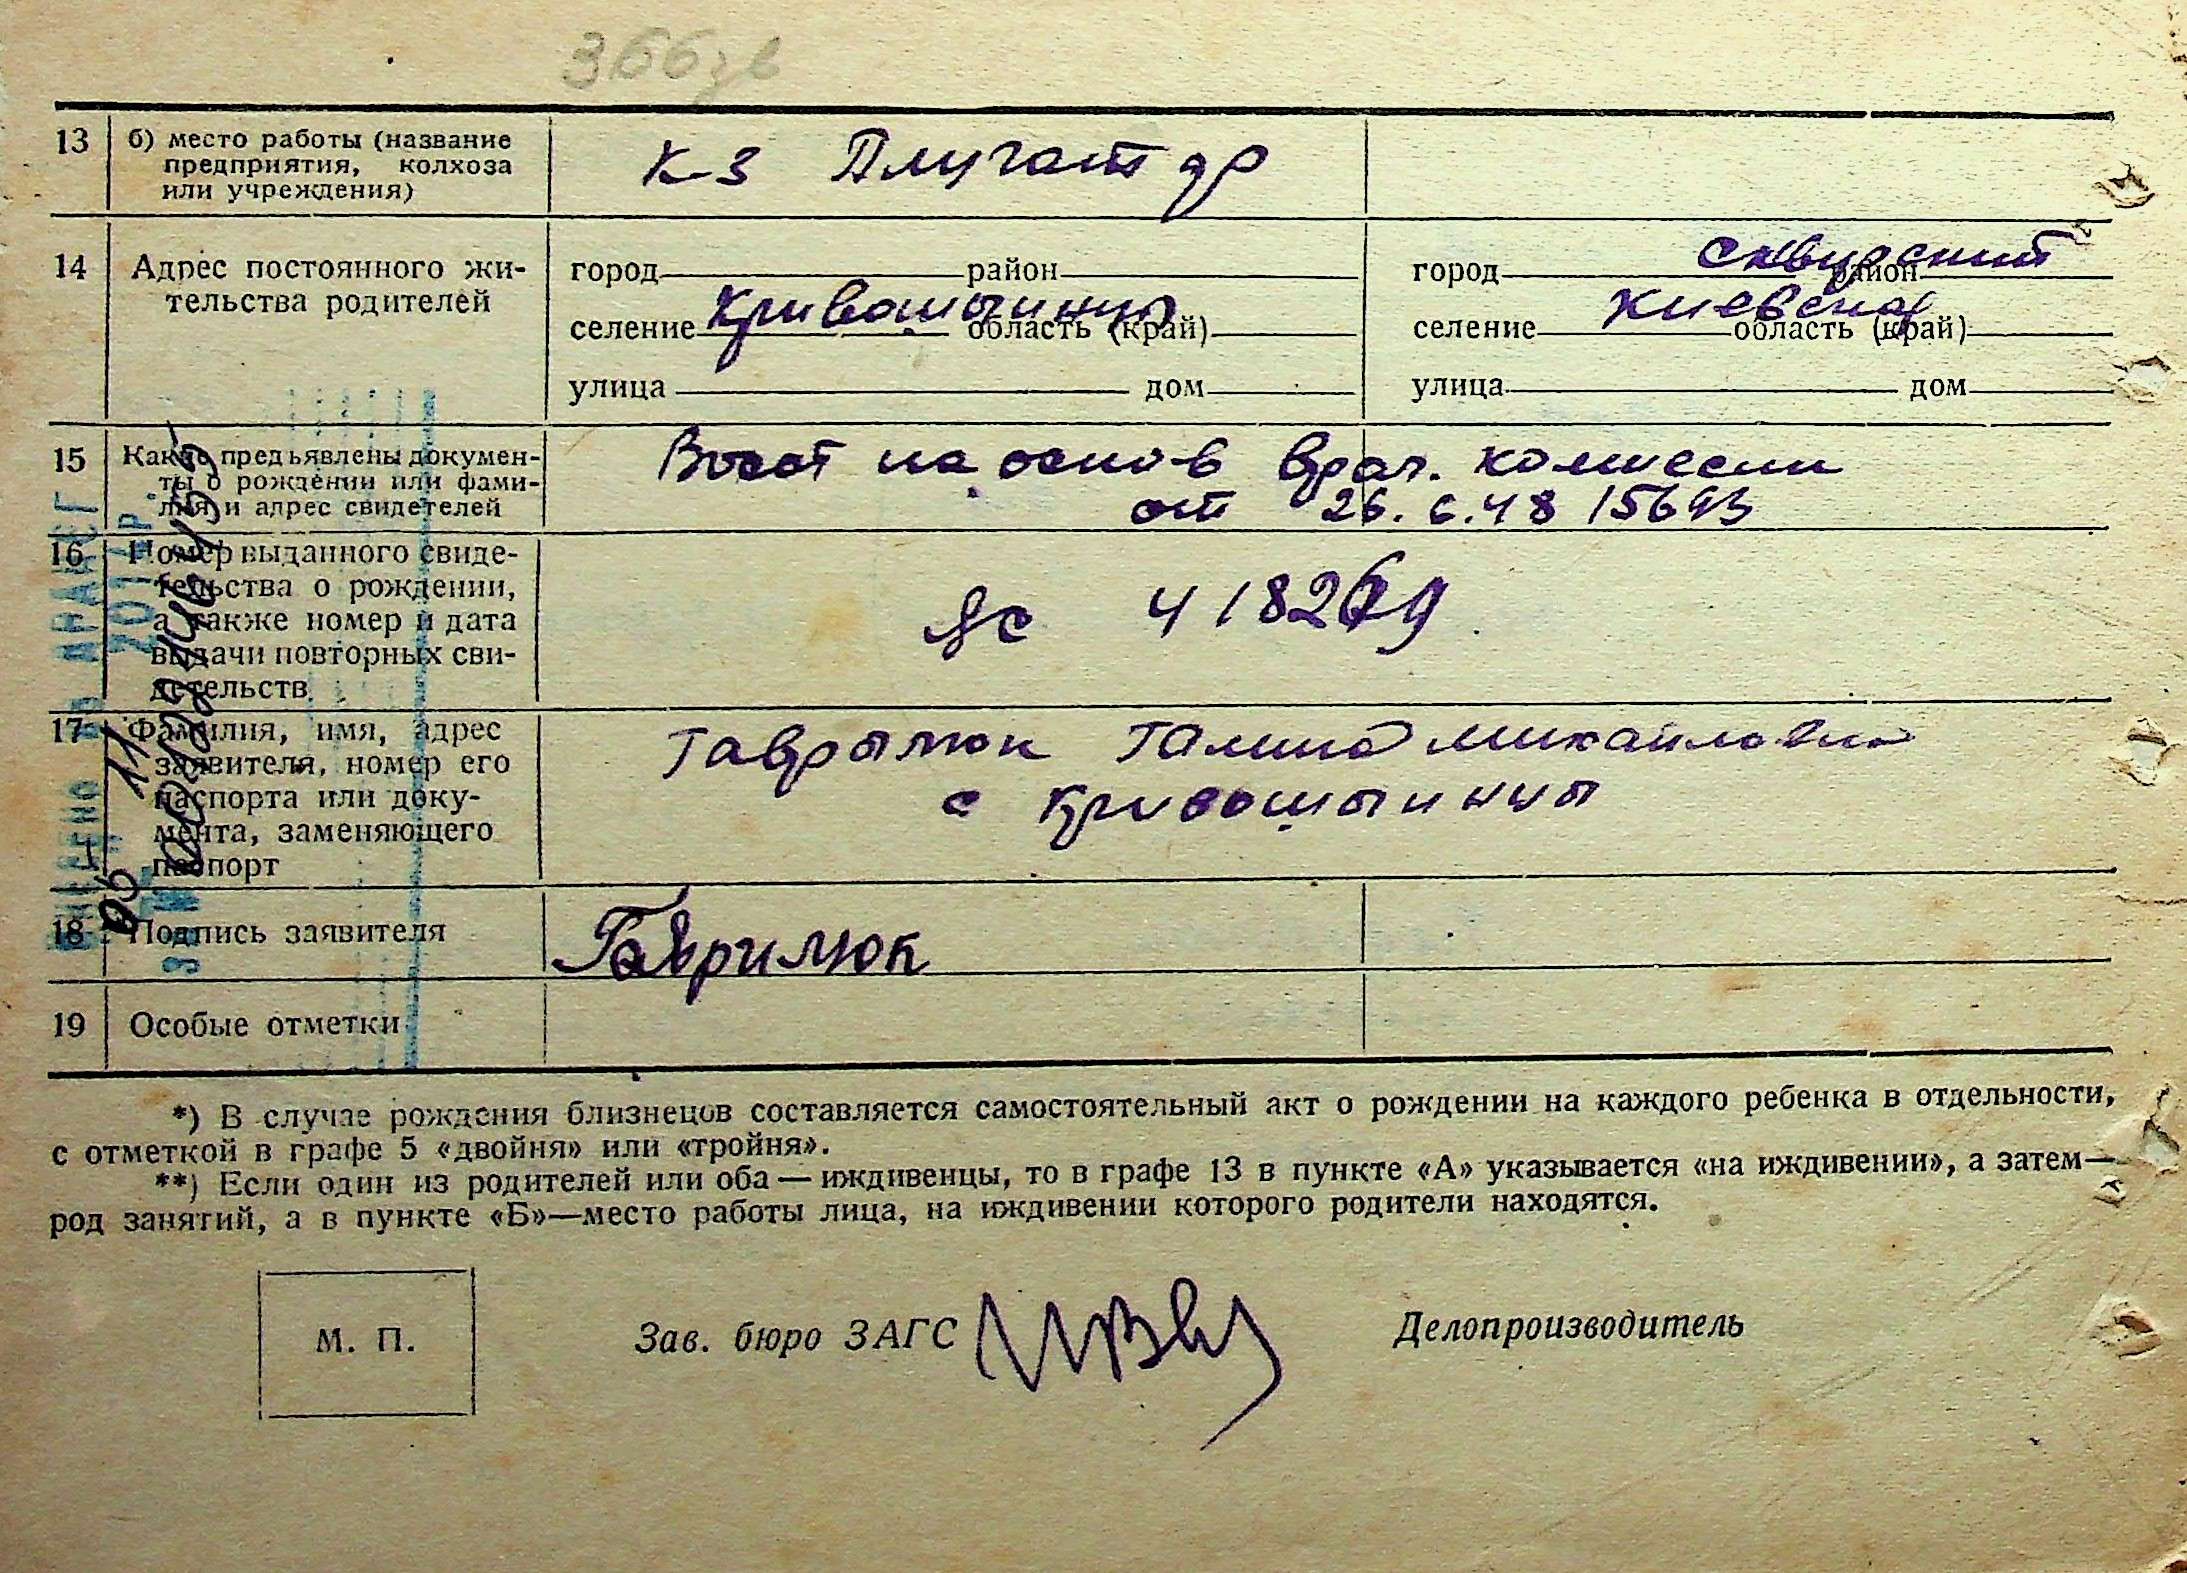 13 б) место работы (название предприятия, колхоза или учреждения) к-з Плугатар
14 Адрес постоянного жительства родителей
город район город Сквирский район
селение Кривошыинцы область (край) селение Киевская область (край)
улица дом улица дом
15 Какие предъявлены документы о рождении или фамилия и адрес свидетелей
Восст на основ врач. комиссии
от 26.6.48 15693
16 Номер выданного свидетельства о рождении, а также номер и дата выдачи повторных свидетельств
418269
17 Фамилия, имя, адрес заявителя, номер его паспорта или документа, заменяющего паспорт
Гаврылюк Галина Михайловна
с Кривошыинцы
18 Подпись заявителя Гаврилюк
19 Особые отметки
*) В случае рождения близнецов составляется самостоятельный акт о рождении на каждого ребенка в отдельности,
с отметкой в графе 5 «двойня» или «тройня».
**) Если один из родителей или оба — иждивенцы, то в графе 13 в пункте «А» указывается «на иждивении», а затем—
род занятий, а в пункте «Б»—место работы лица, на иждивении которого родители находятся.
М. П. Зав. бюро ЗАГС Делопроизводитель